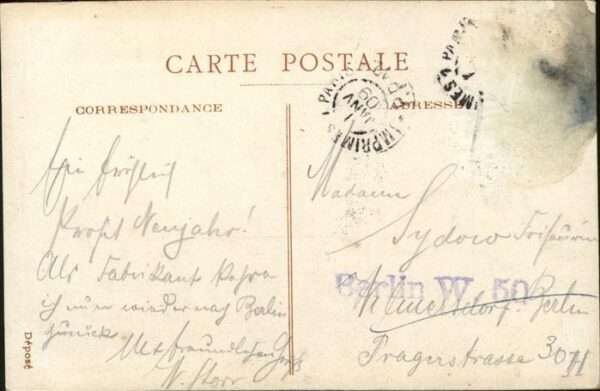 CARTE POSTALE
CORRESPONDANCE
ADRESSE
PARIS
1
JANV
09
IMPRIMES
IMES 2 PARIS
Ein fröhlich
Prosit Neujahr!
Als Fabrikant kehre
ich nun wieder nach Berlin
zurück
Mit freundlichem Gruß
W. Storr
Madame
Sydow
Berlin W. 50
Wilmersdorf-Berlin
Pragerstrasse 30 II
Déposé